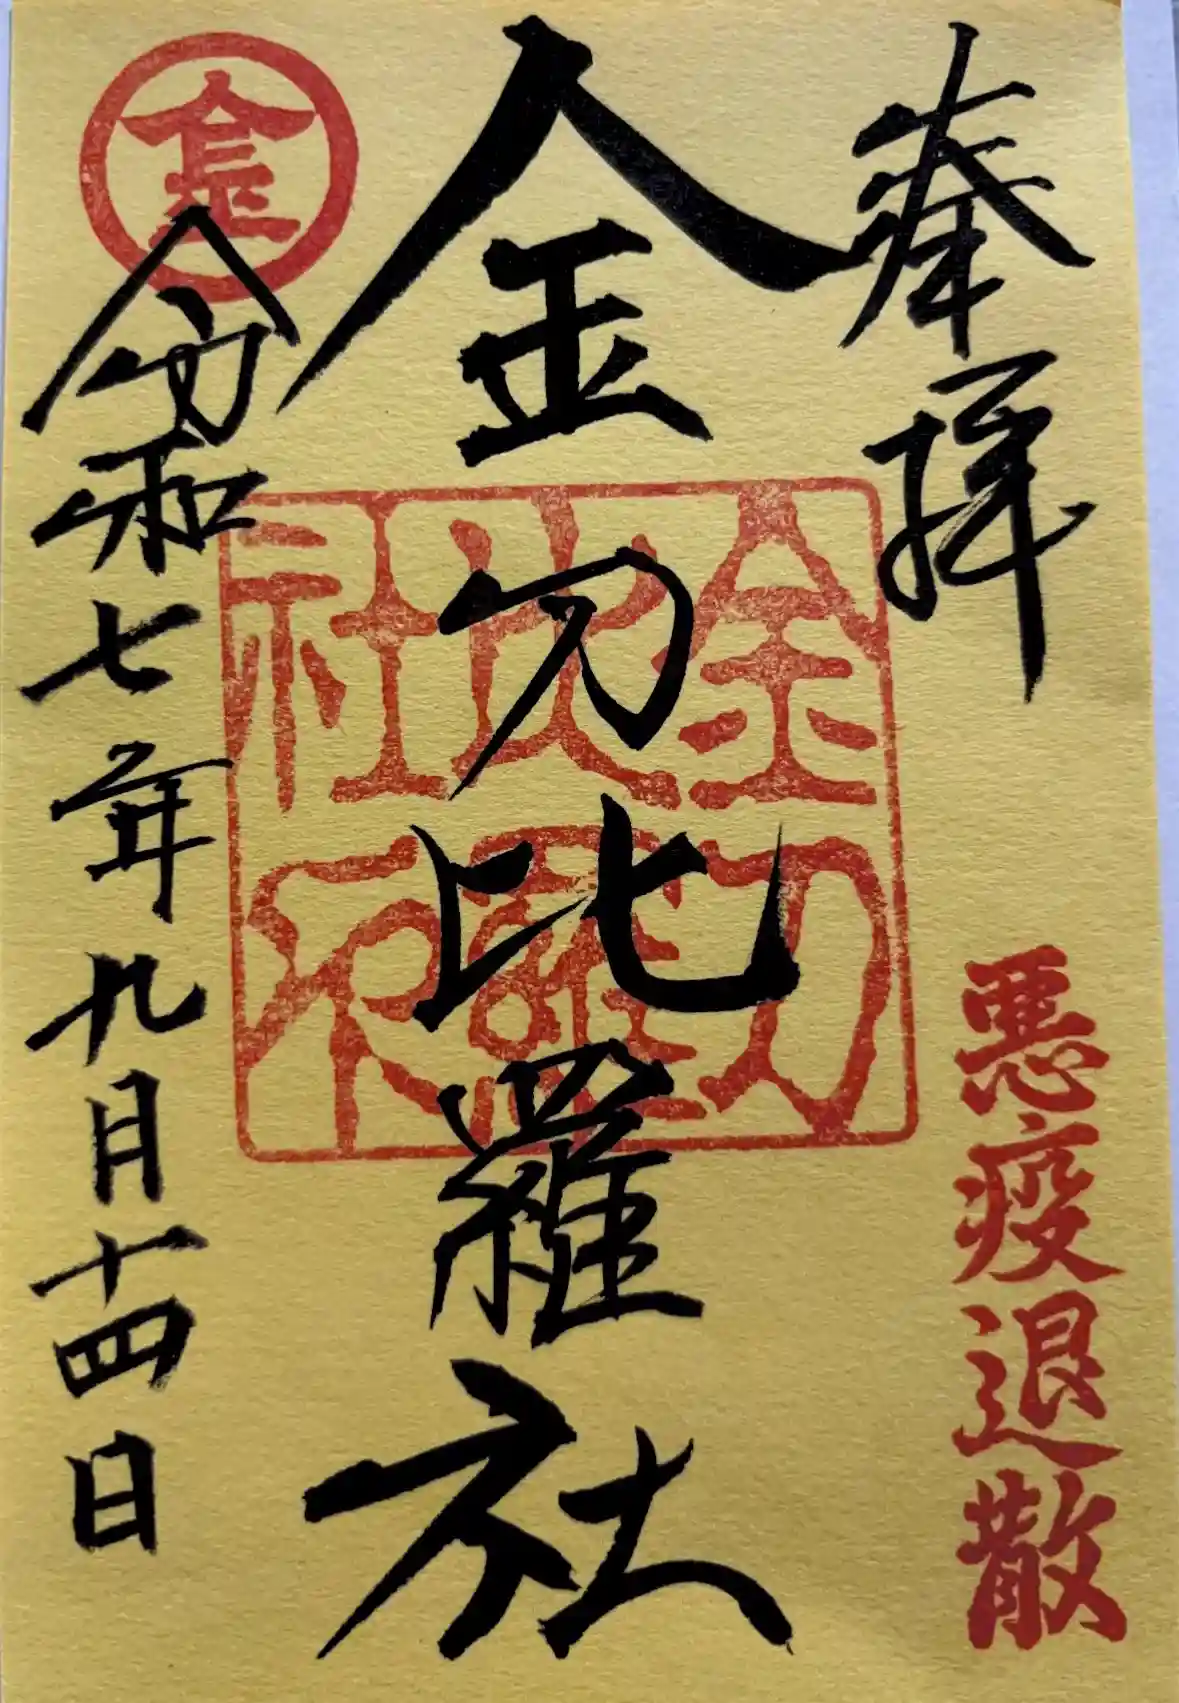 奉拝
悪疫退散
金刀比羅社
金刀
比羅
社
金
令和七年九月十四日